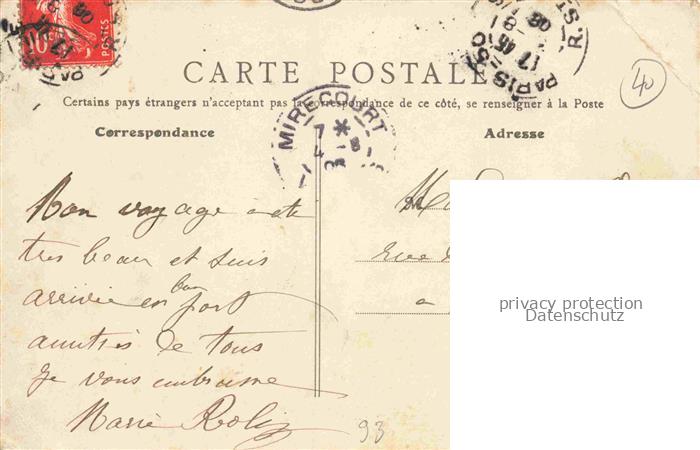 10c
PARIS-50
17 45
8-1
08
R. ST
CARTE POSTALE
40
Certains pays étrangers n'acceptant pas la correspondance de ce côté, se renseigner à la Poste
Correspondance
MIRECOURT
7 *
4 - 8
08
Adresse
Mon voyage a ete
tres beau et suis
arrivée en bon port
amitiés de tous
Je vous embrasse
Marie
93
M
rue
a
privacy protection
Datenschutz